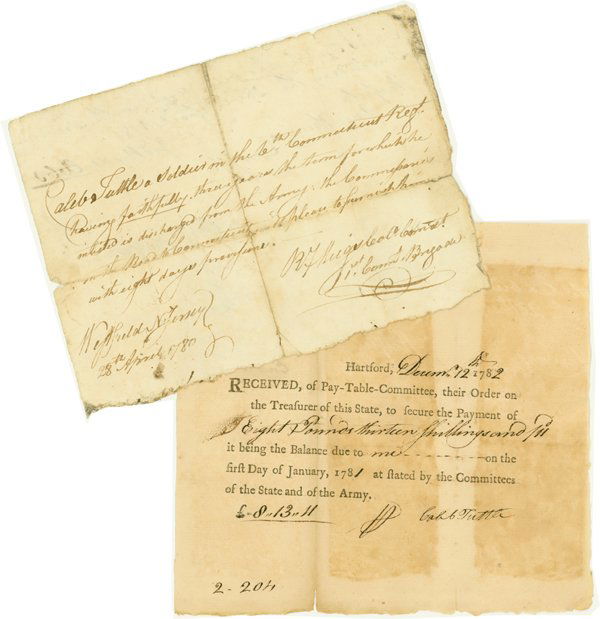 Caleb Tuttle a Soldier in the 6th Connecticut Regt.
having faithfully three years the term for which he
inlisted is discharged from the Army; the Commissaries
on the Road to Connecticut will please to furnish him
with eight days provisions.
R J Meigs Colo. Comdt.
1st Connt. Brigade
Westfield N Jersey
28th April 1780
Hartford, Decemr. 12th 1782
RECEIVED, of Pay-Table-Committee, their Order on
the Treasurer of this State, to secure the Payment of
Eight Pounds thirteen Shillings and
it being the Balance due to me on the
first Day of January, 1781 at stated by the Committees
of the State and of the Army.
£-8..13..11 Caleb Tuttle
2-204